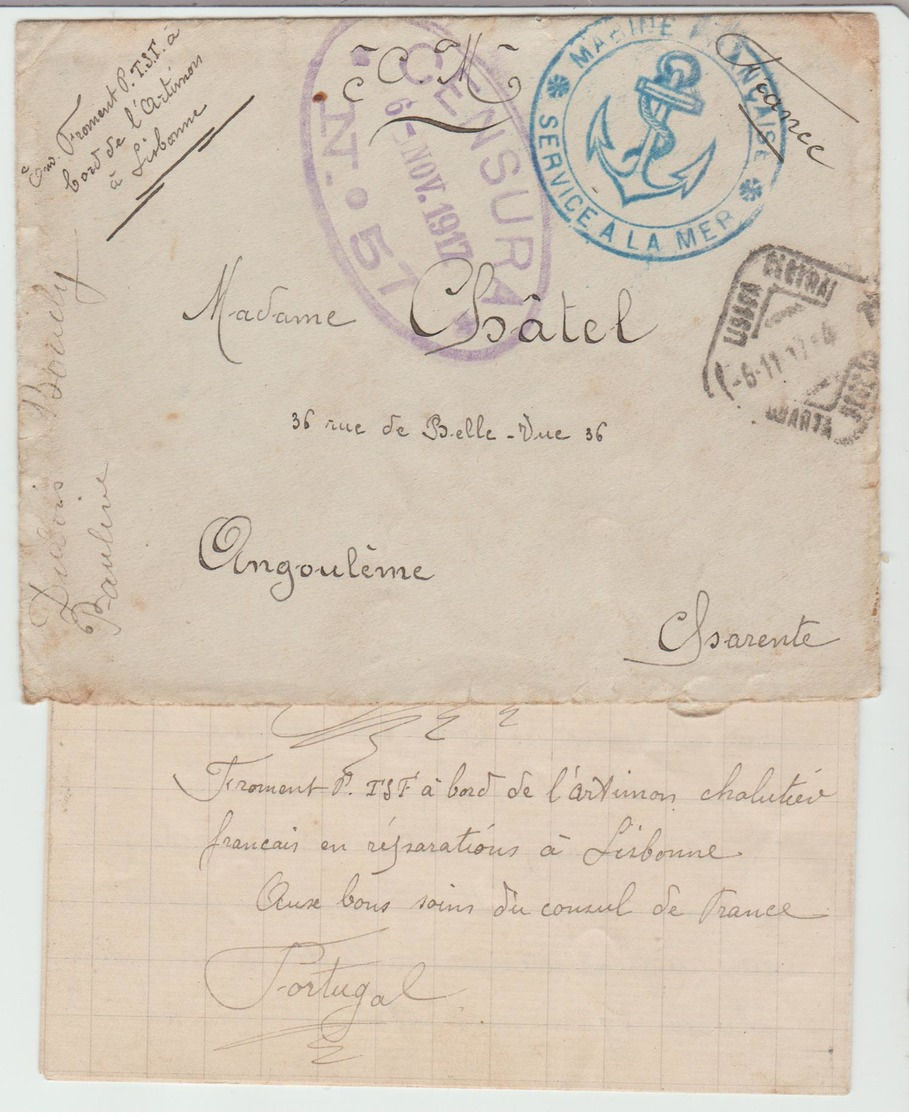 Env. Froment P. T.S.F. à
bord de l'Artimon
à Lisbonne
C.M.
France
CENSURA
6-NOV. 1917
N.º 57
MARINE FRANÇAISE
SERVICE A LA MER
LISBOA CENTRAL
-6-11 17-6
QUARTA SECÇÃO
Madame Châtel
36 rue de Belle-Vue 36
Angoulême
Charente
Dubois
Pauline
Froment P. TSF à bord de l'artimon chalutiér
francais en réparatiós à Lisbonne
Aux bons soins du consul de France
Portugal